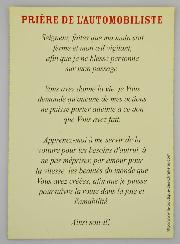 PRIÈRE DE L'AUTOMOBILISTE
Seigneur, faites que ma main soit
ferme et mon œil vigilant,
afin que je ne blesse personne
sur mon passage.
Vous avez donné la vie, je Vous
demande qu'aucune de mes actions
ne puisse porter atteinte à ce don
que Vous avez fait.
Apprenez-moi à me servir de la
voiture pour les besoins d'autrui, à
ne pas mépriser, par amour pour
la vitesse, les beautés du monde que
Vous avez créées, afin que je puisse
poursuivre la route dans la joie et
l'amabilité.
Ainsi soit-il!